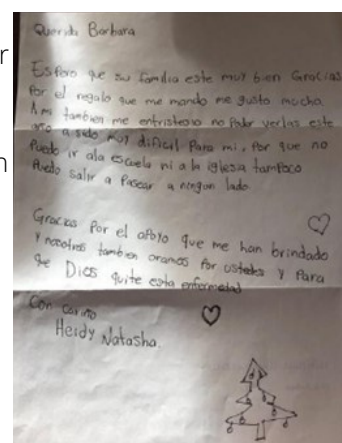 Querida Barbara
Espero qe su familia este muy bien Gracias
Por el regalo que me mando me gusto mocha.
A mi tambien me entristecio no Poder verlas este
año a sido muy dificil Para mi, Por que no
Puedo ir ala escuela ni a la iglesia tampoco
Puedo salir a Pasear a ningun lado.
Gracias Por el apoyo que me han brindado
Y nosotros tambien oramos Por ustedes Y Para
que Dios quite esta enfermedad
Con cariño
Heidy Natasha.